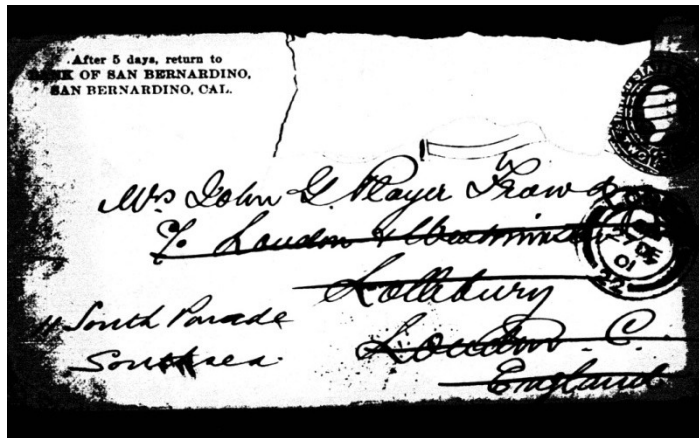 After 5 days, return to
BANK OF SAN BERNARDINO,
SAN BERNARDINO, CAL.
Mrs John G. Player Frowd
c/o London & Westminster
Lothbury
London E.C.
England
11 South Parade
Southsea.
DE
01
22